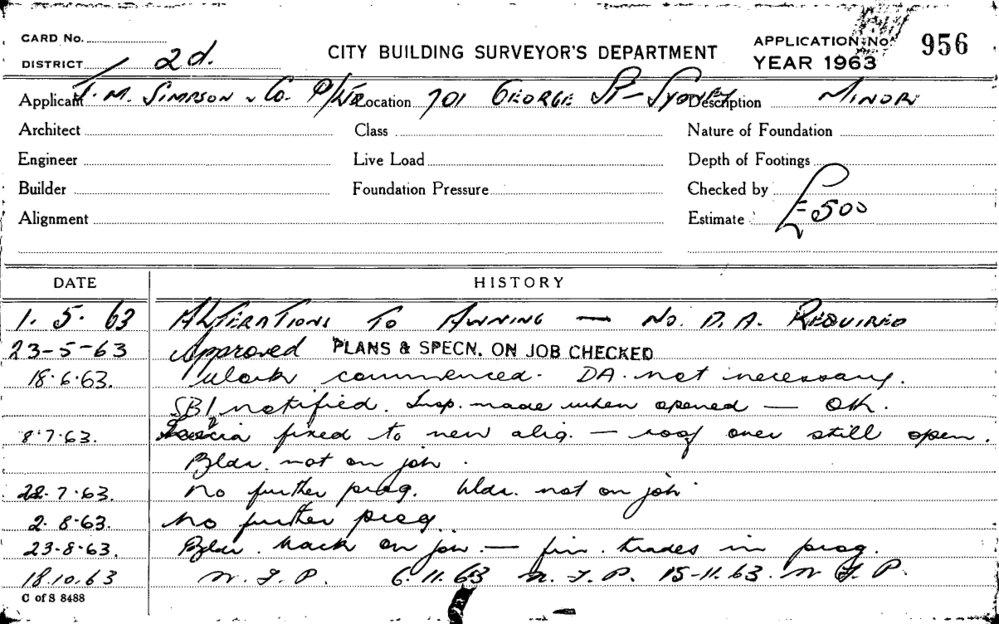 CARD No.
DISTRICT 2d.
CITY BUILDING SURVEYOR'S DEPARTMENT
APPLICATION No. 956
YEAR 1963
Applicant J. M. SIMPSON & Co. P/LTD Location 701 GEORGE ST - SYDNEY Description MINOR
Architect Class Nature of Foundation
Engineer Live Load Depth of Footings
Builder Foundation Pressure Checked by
Alignment Estimate £500
DATE HISTORY
1. 5. 63 ALTERATIONS TO AWNING — No. D. A. REQUIRED
23-5-63 Approved PLANS & SPECN. ON JOB CHECKED
18.6.63. Work commenced. DA. not necessary.
SBI notified. Insp. made when opened — OK.
8.7.63. Fascia fixed to new alig. — roof over still open.
Bldr. not on job.
22.7.63. No further prog. Bldr. not on job.
2. 8.63. No further prog.
23.8.63. Bldr. back on job. — fin. trades in prog.
18.10.63 N. F. P. 6.11.63 N. F. P. 15-11.63. N F P.
C of S 8488